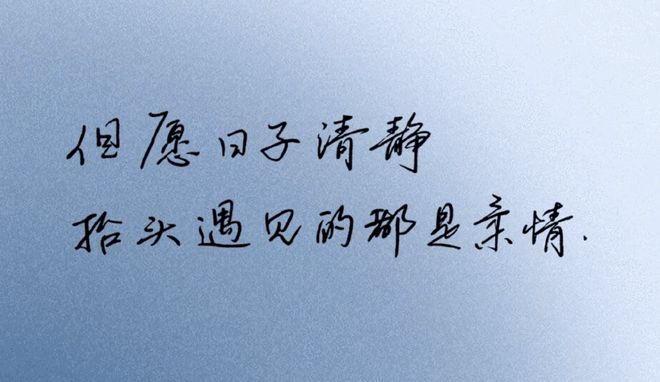 但愿日子清静
抬头遇见的都是亲情.